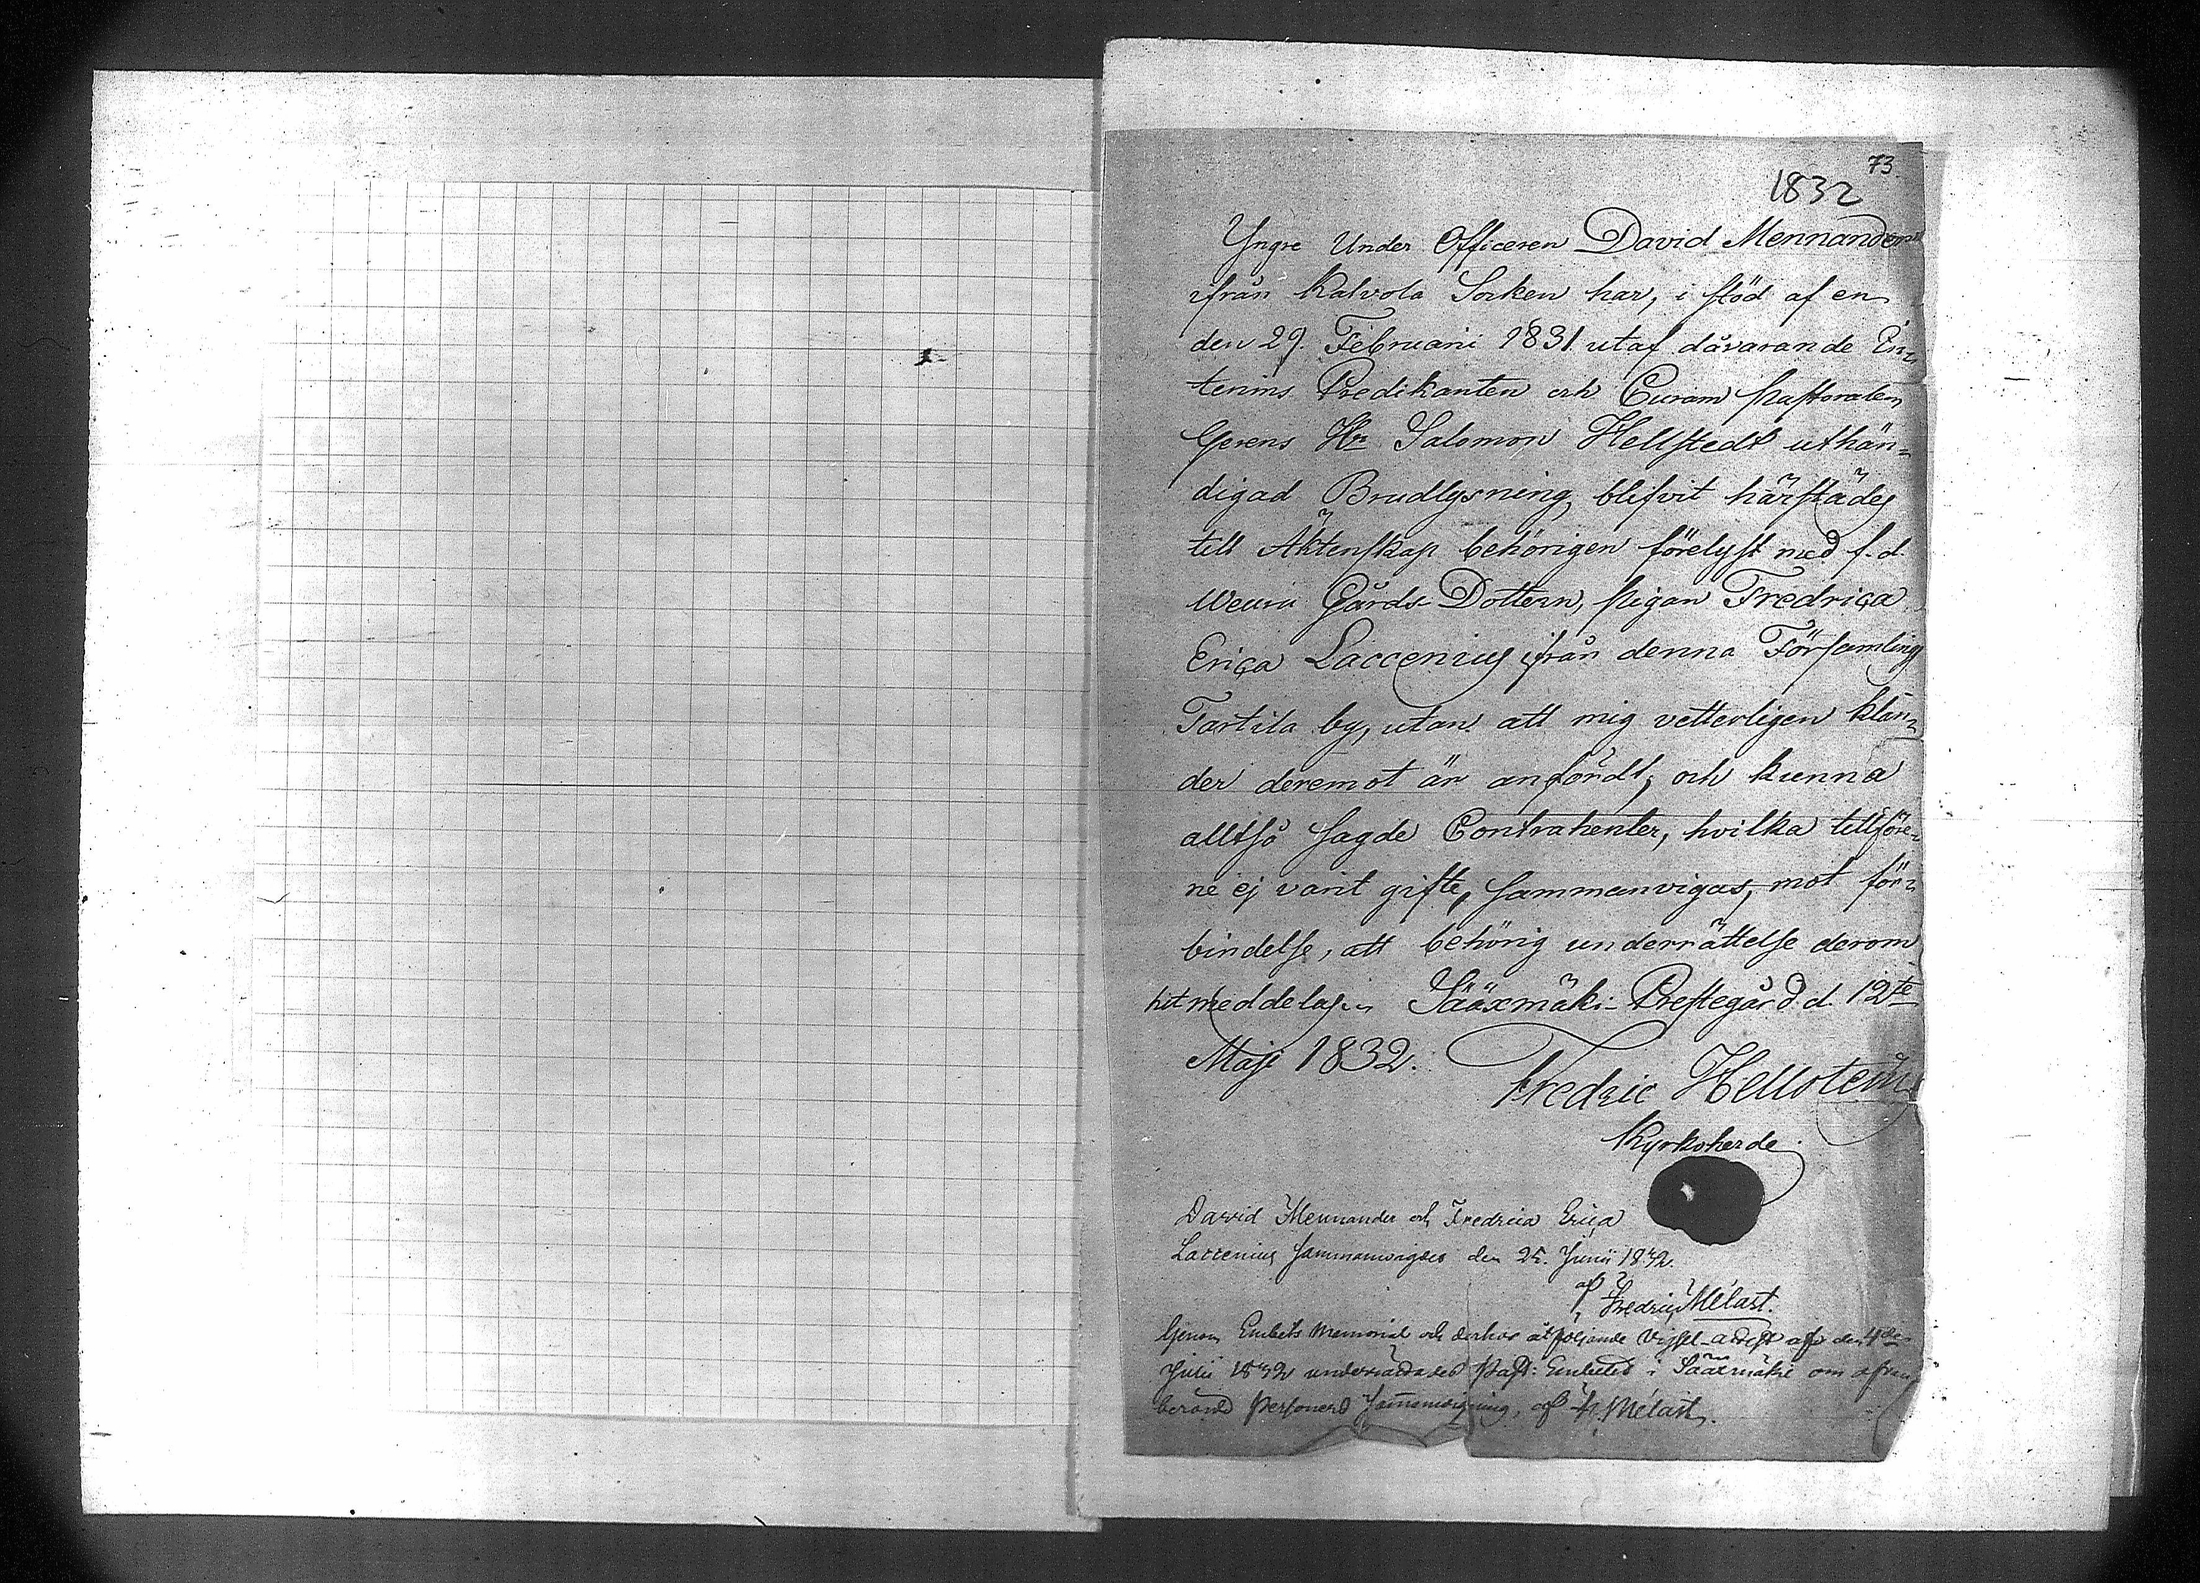 73.
1832
Yngre Under Officeren David Mennander
ifrån Kalvola Socken har, i stöd af en
den 29. Februarii 1831 utaf dåvarande In-
terims Predikanten och Curam pastoralem
Gerens Hr Salomon Hellstedt uthän-
digad Brudlysning, blifvit härstädes
till Äktenskap behörigen förelyst med f. d.
Gårds Dottern, pigan Fredrica
Erica Laccenius ifrån denna Församling
Tartila by, utan att mig vetterligen klan-
der deremot är anfördt, och kunna
alltså sagde Contrahenter, hvilka tillföre-
ne ej varit gifte, sammanvigas, mot för-
bindelse, att behörig underrättelse derom
hit meddelas. Sääxmäki Prestegård d. 12te
Maji 1832.
Fredric Hellsten
Kyrkoherde.
David Mennander och Fredrica Erica
Laccenius sammanvigdes den 25. Junii 1832.
af Fredric Mélart.
Genom Embets Memorial och derhos åtföljande Vigsel-attest af den 4de
Julii 1832 underrättades Past: Embetet i Sääxmäki om ofvan
berörde personers sammanvigning, af Fr. Mélart.